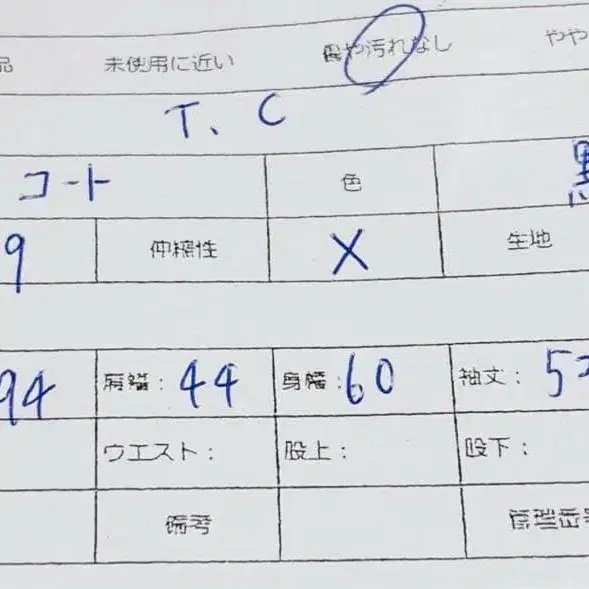 品 未使用に近い 傷や汚れなし やや
T、C
コート 色 黒
9 伸縮性 X 生地
94 肩幅：44 身幅：60 袖丈：5
ウエスト： 股上： 股下：
備考 管理番号